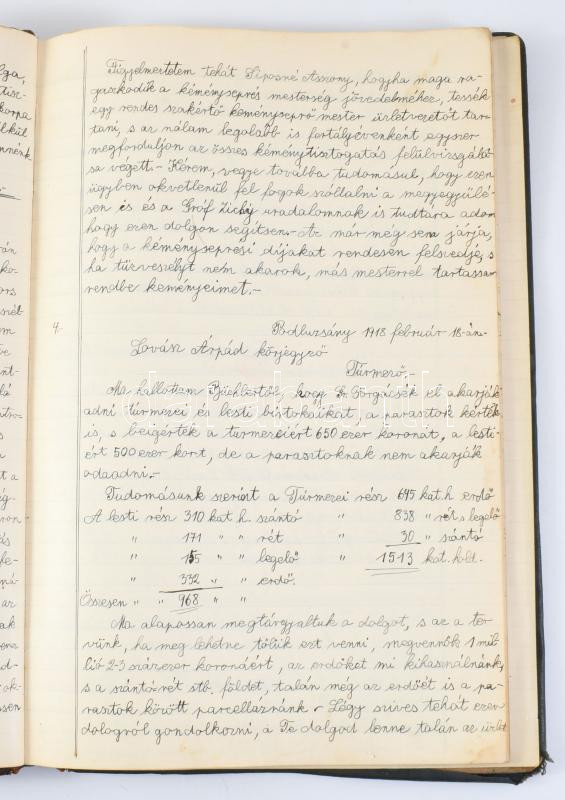 Figyelmeztetem tehát Siposné Asszony, hogyha maga ra-
gaszkodik a kéményseprés mesterség jövedelméhez, tessék
egy rendes szakértő kéményseprő mester üzletvezetőt tar-
tani, s az nálam legalább is fertályévenként egyszer
megforduljon az összes kéménytisztogatás felülvizsgálá-
sa végett.- Kérem, vegye továbbá tudomásul, hogy ezen
ügyben okvetlenül fel fogok szóllalni a megyegyűlé-
sen is és a Gróf Zichy uradalomnak is tudtára adom
hogy ezen dolgon segítsen.- Az már még sem járja,
hogy a kéményseprési díjakat rendesen felszedje, s
ha tűzveszélyt nem akarok, más mesterrel tartassam
rendbe kéményeimet.-
Podluzsány 1918 február 18-án.
4.
Lovász Árpád körjegyző
Túrmező.-
Ma hallottam Büchlertől, hogy Dr. Forgácsék el akarják
adni túrmezei és lesti birtokaikat, a parasztok kérték
is, s beigérték a túrmezeiért 650 ezer koronát, a lesti-
ért 500 ezer kort, de a parasztoknak nem akarják
odaadni.-
Tudomásunk szerint a Túrmezei rész 645 kat.h. erdő
A lesti rész 310 kat. h. szántó " 838 " rét s legelő
" 171 " " rét " 30 " szántó
" 155 " " legelő " 1513 kat. hold.
" 332 " " erdő.
Összesen " " 968 " "
Ma alaposan megtárgyaltuk a dolgot, s az a ter-
vünk, ha meg lehetne tőlük ezt venni, megvennők 1 mil-
lió 2-3 százezer koronáért, az erdőket mi kihasználnánk,
s a szántó-rét stb. földet, talán még az erdőét is a pa-
rasztok között parcelláznánk.- Légy szíves tehát ezen
dologról gondolkozni, a Te dolgod lenne talán az üzlet